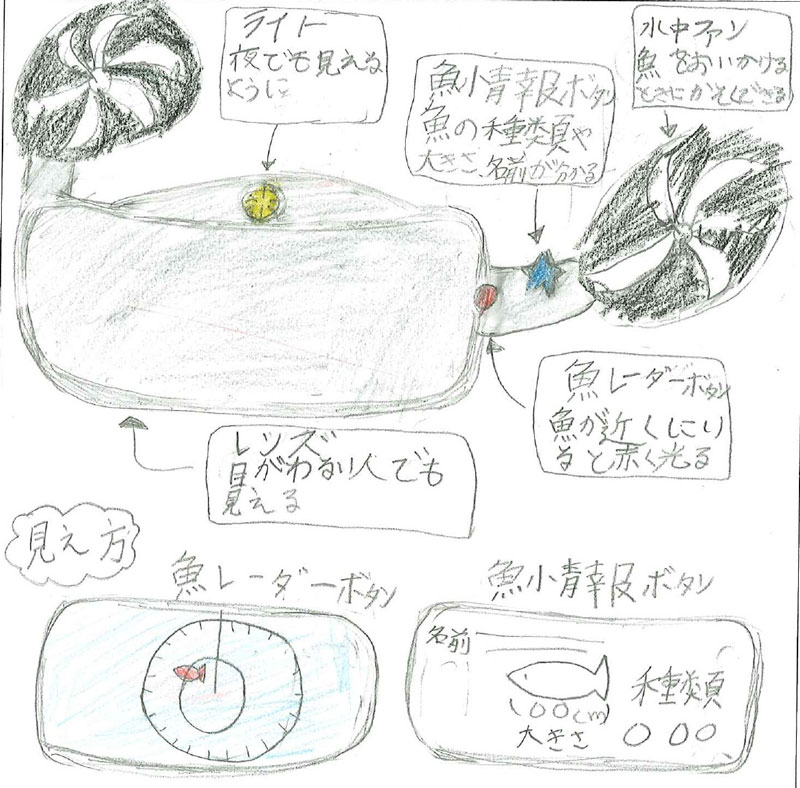 ライト
夜でも見える
ように
魚情報ボタン
魚の種類や
大きさ、名前が分かる
水中ファン
魚をおいかける
ときにかそくできる
魚レーダーボタン
魚が近くにい
ると赤く光る
レンズ
目がわるい人でも
見える
見え方
魚レーダーボタン
魚情報ボタン
名前
cm
大きさ
種類
○○○